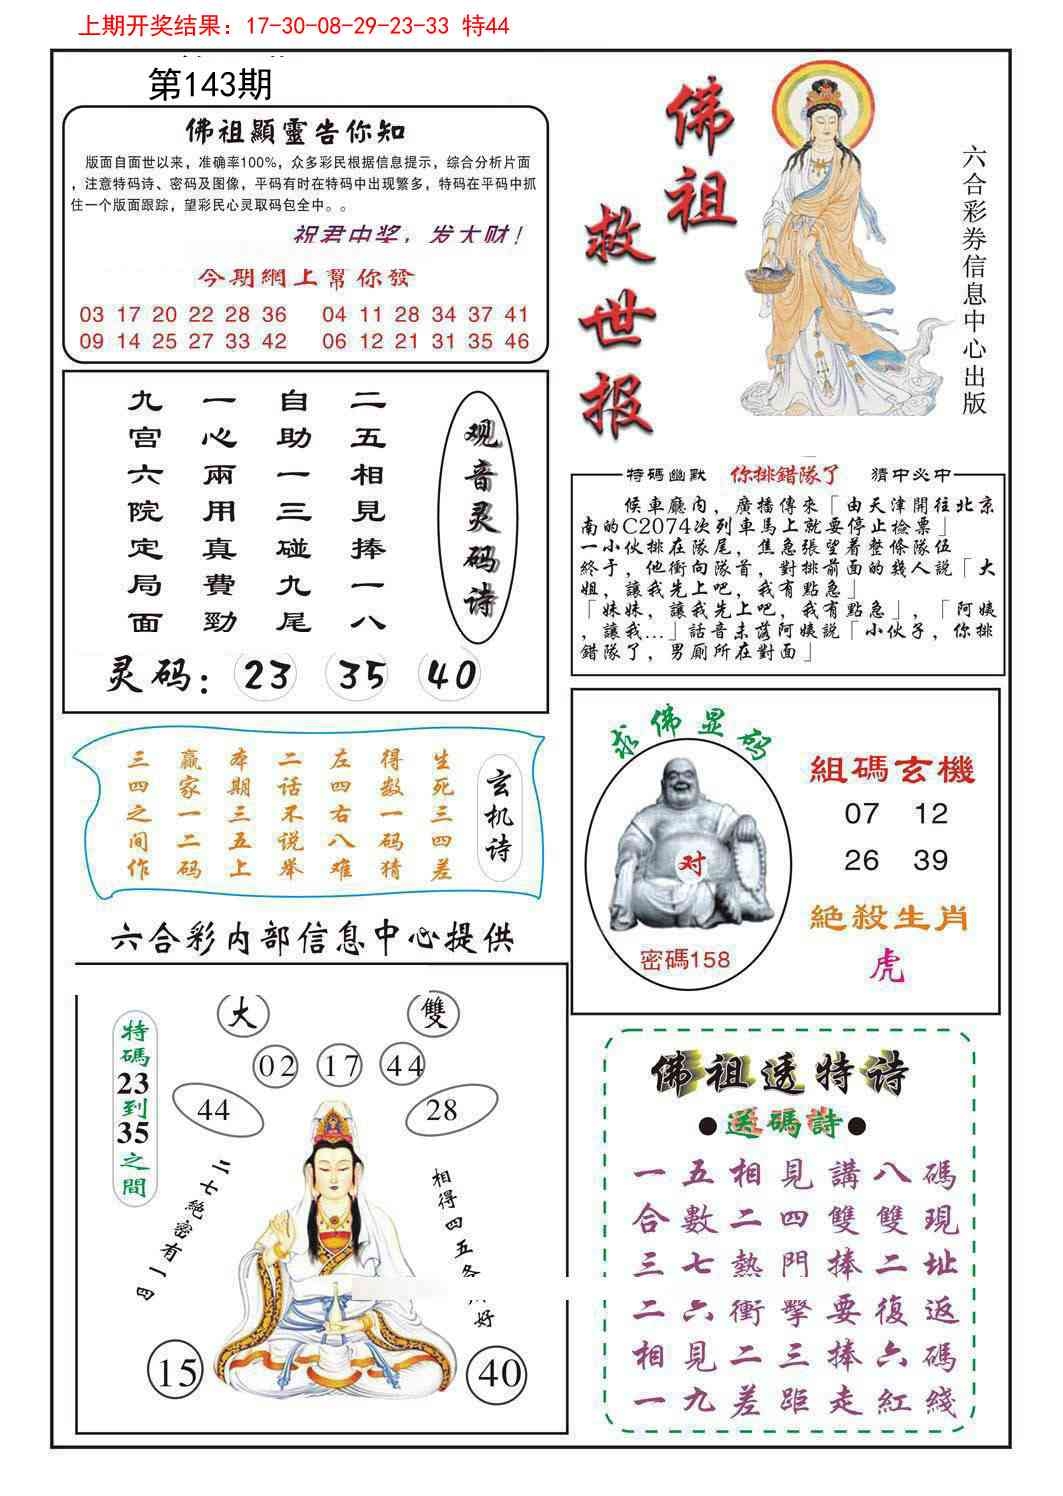 上期开奖结果：17-30-08-29-23-33 特44
第143期
佛祖顯靈告你知
版面自面世以来，准确率100%，众多彩民根据信息提示，综合分析片面
，注意特码诗、密码及图像，平码有时在特码中出现繁多，特码在平码中抓
住一个版面跟踪，望彩民心灵取码包全中。。
祝君中奖，发大财！
今期網上幫你發
03 17 20 22 28 36 04 11 28 34 37 41
09 14 25 27 33 42 06 12 21 31 35 46
佛祖
救世报
六合彩券信息中心出版
观音灵码诗
二五相見捧一八
自助一三碰九尾
一心兩用真費勁
九宫六院定局面
灵码：23 35 40
特碼幽默 你排錯隊了 猜中必中
侯車廳内，廣播傳來「由天津開往北京
南的C2074次列車馬上就要停止檢票」
一小伙排在隊尾，焦急張望着整條隊伍
終于，他衝向隊首，對排前面的幾人説「大
姐，讓我先上吧，我有點急」
「妹妹，讓我先上吧，我有點急」，「阿姨
，讓我...」話音未落阿姨説「小伙子，你排
錯隊了，男厕所在對面」
玄机诗
生死三四差
得数一码猜
左四右八难
二话不说举
本期三五上
赢家一二码
三四之间作
求佛显码
对
密碼158
組碼玄機
07 12
26 39
絕殺生肖
虎
六合彩内部信息中心提供
大 雙
02 17 44
44 28
特碼23到35之間
二七絕密有一四
相得四五
好
15 40
佛祖透特诗
●送碼詩●
一五相見講八碼
合數二四雙雙現
三七熱門捧二址
二六衝擊要復返
相見二三捧六碼
一九差距走紅綫